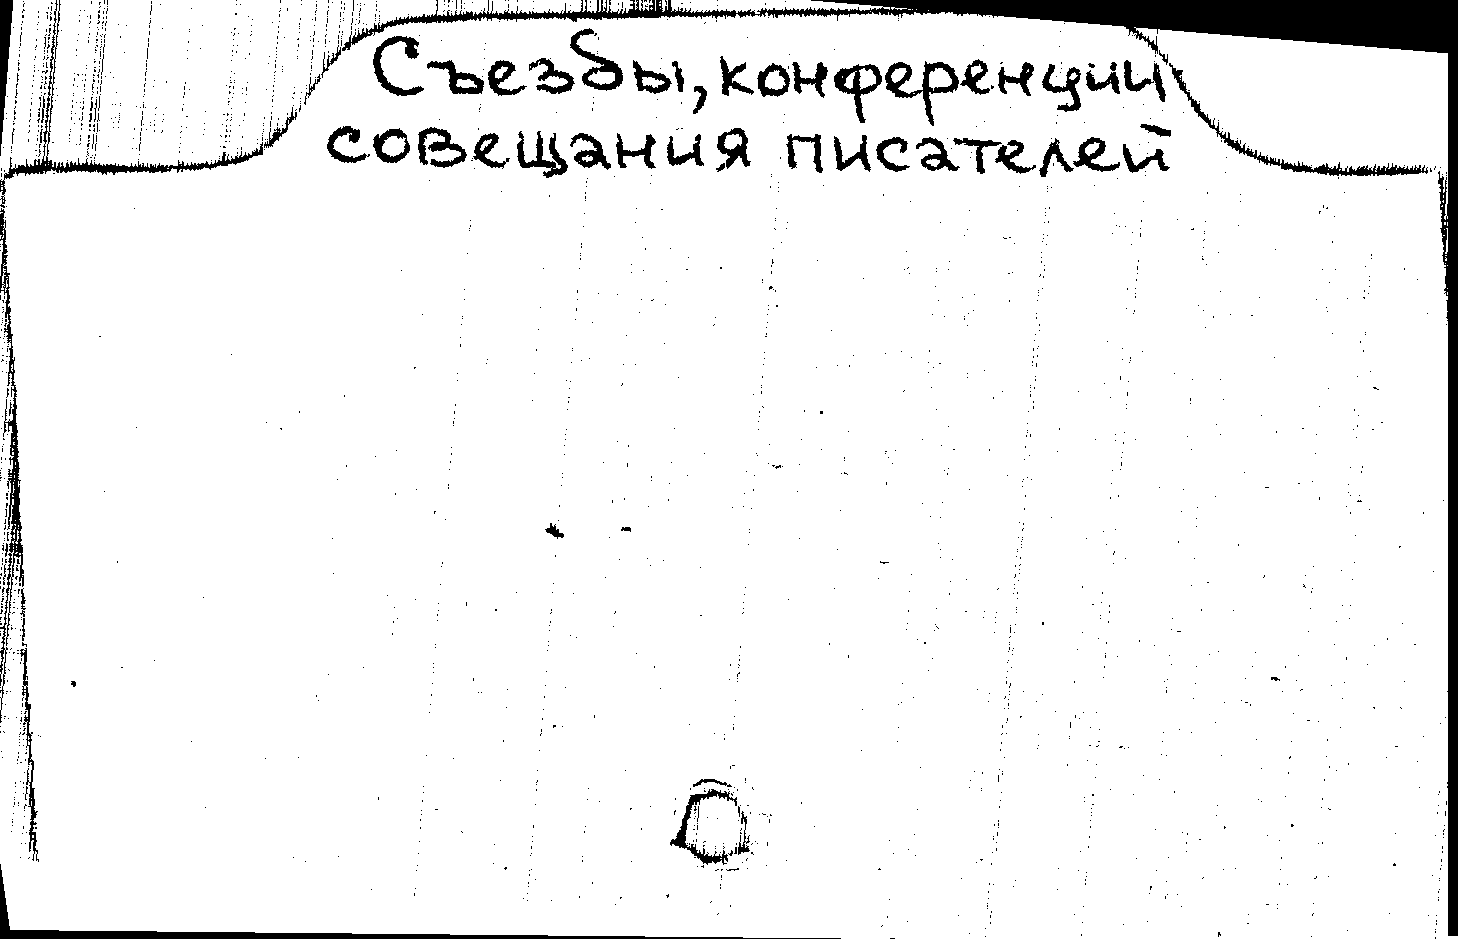 Съезды, конференции
совещания писателей